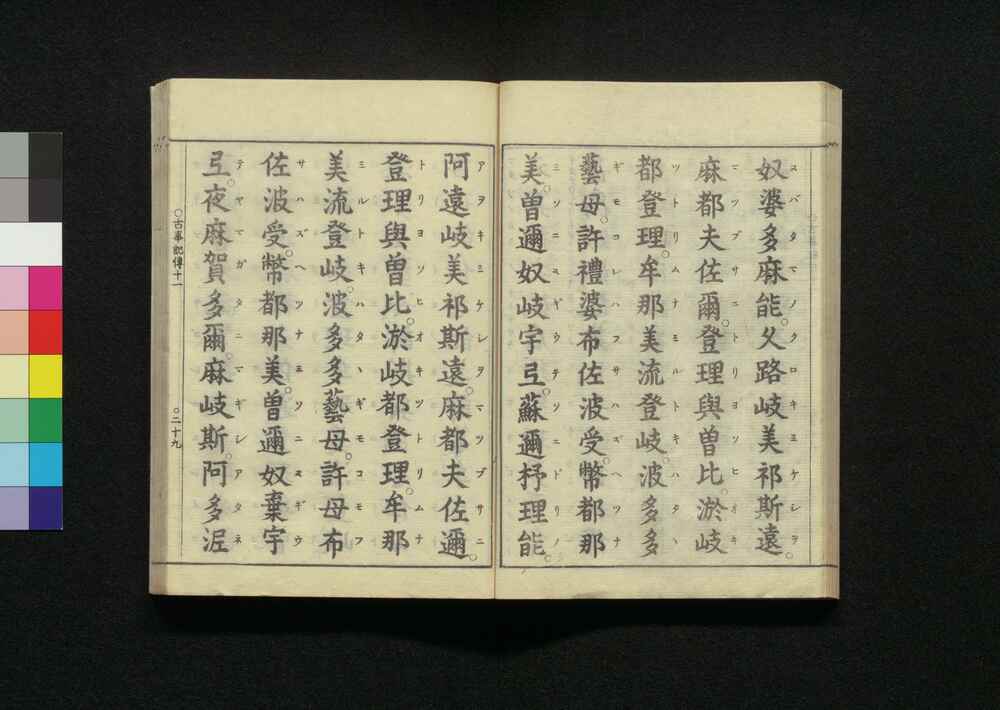 奴婆多麻能。久路岐美祁斯遠。
麻都夫佐爾。登理與曾比。淤岐
都登理。牟那美流登岐。波多多
藝母。許禮婆布佐波受。幣都那
美。曾邇奴岐宇弖。蘇邇杼理能。
阿遠岐美祁斯遠。麻都夫佐邇。
登理與曾比。淤岐都登理。牟那
美流登岐。波多多藝母。許母布
佐波受。幣都那美。曾邇奴棄宇
弖。夜麻賀多爾。麻岐斯。阿多泥
○古事記傳十一 ○二十九